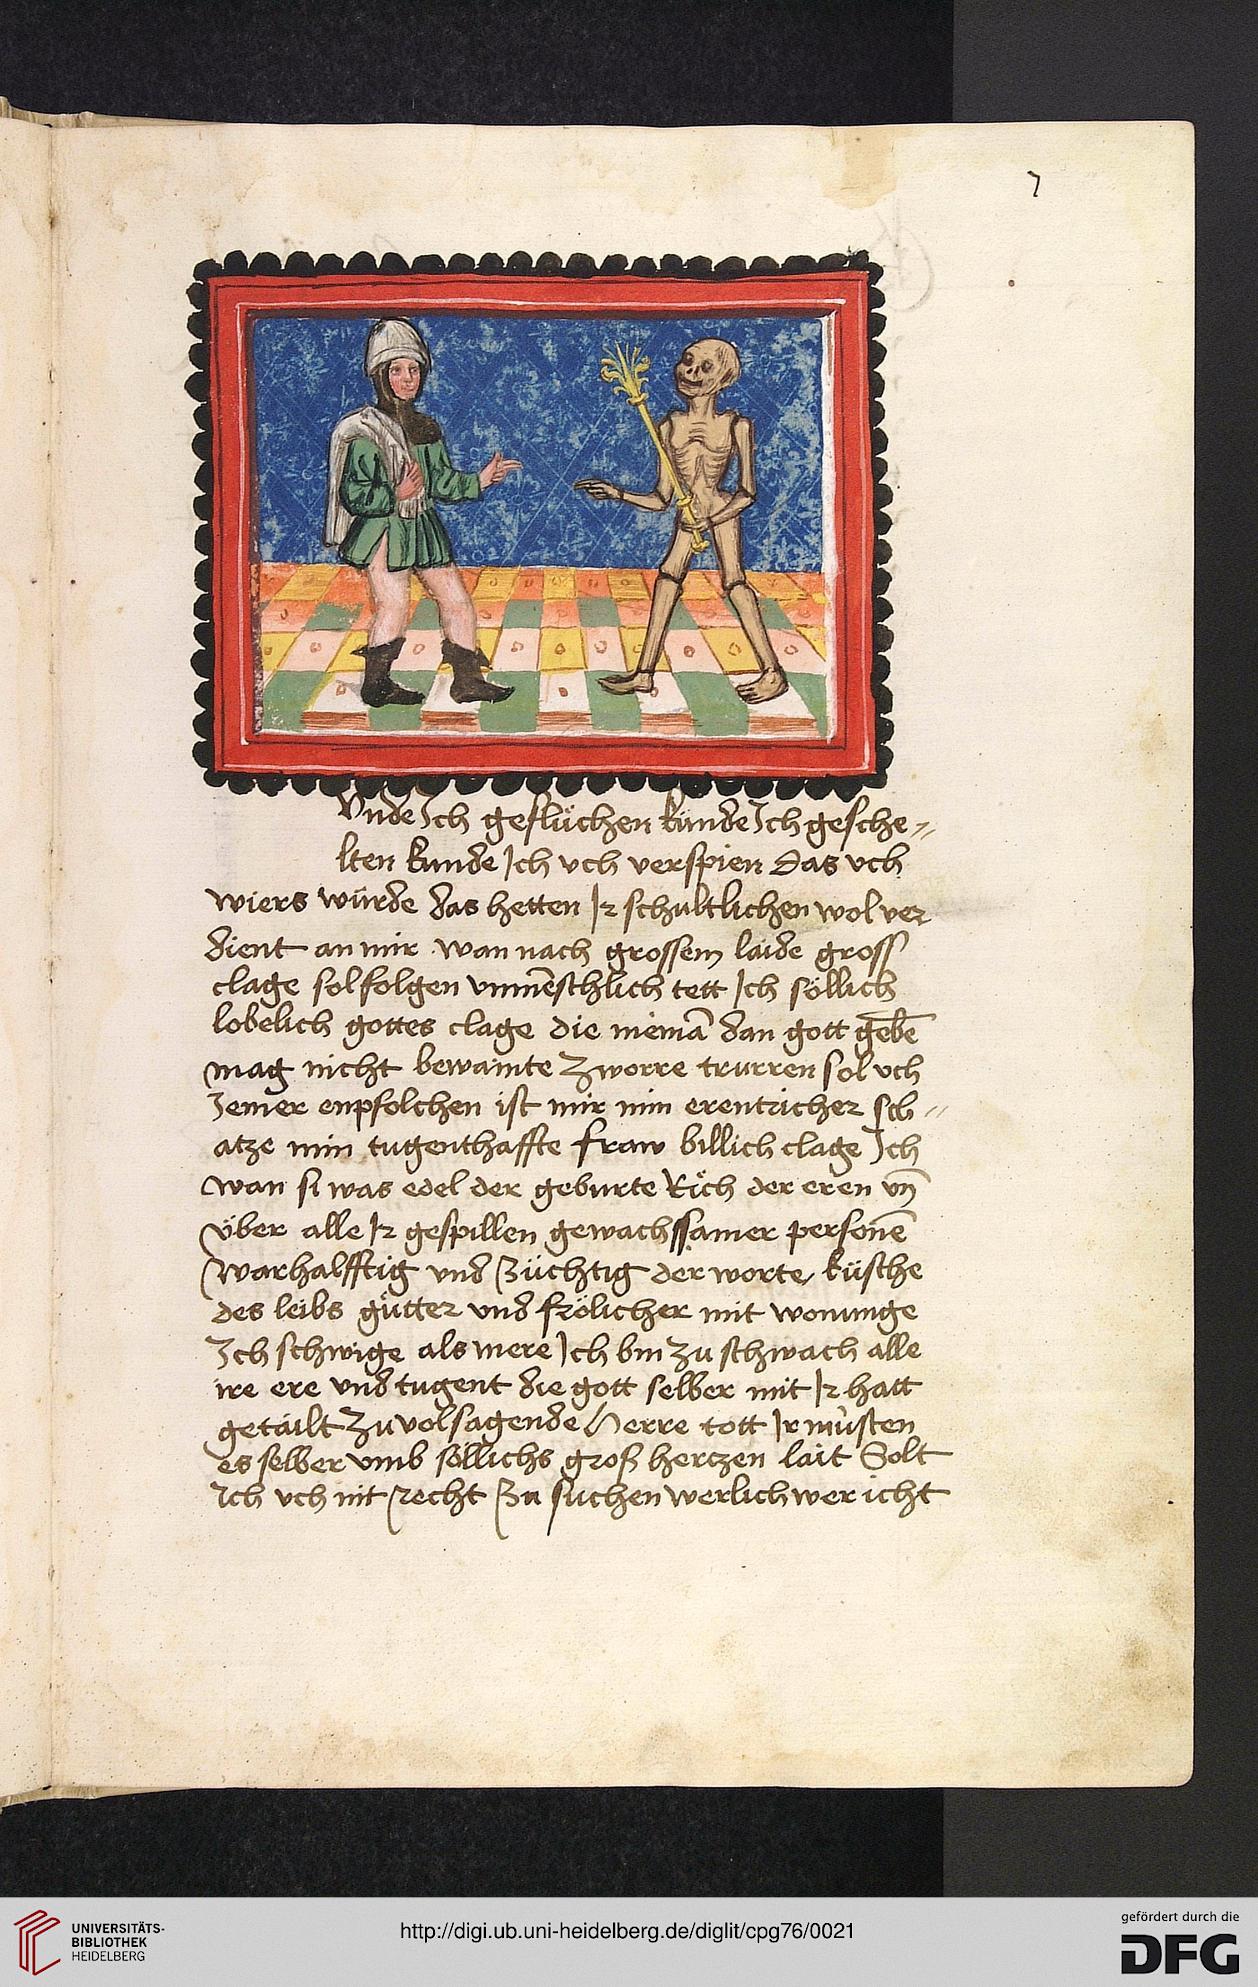 7
Vnde Ich geflüchen künde Ich gesche〃
lten kunde Ich vch verspien das vch
wiers würde das hetten Ir schaltlichen wol ver
dient an mir wan nach grossem laide gross
clage sol folgen vnmēschlich tett Ich söllich
lobelich gottes clage die niemā dan gott gebē
mag nicht bewainte zworre trurren sol vch
Iemer enpfolchen ist mir min erentricher sch〃
atze min tugenthaffte fraw billich clage Ich
wan si was edel der geburte Rich der eren vn̄
über alle Ir gespillen gewachssamer personē
warhalfftig vnd züchtig der worte küsche
des leibs gütter vnd frölicher mit wonunge
Ich schwige als mere Ich bin zu schwach alle
ire ere vnd tugent die gott selber mit Ir hatt
getailt zu volsagende Herre tott Ir müsten
es selber vmb söllichs groß herczen lait Solt
Ich vch mit recht zu suchen werlich wer icht
UNIVERSITÄTS-
BIBLIOTHEK
HEIDELBERG
http://digi.ub.uni-heidelberg.de/diglit/cpg76/0021
gefördert durch die
DFG